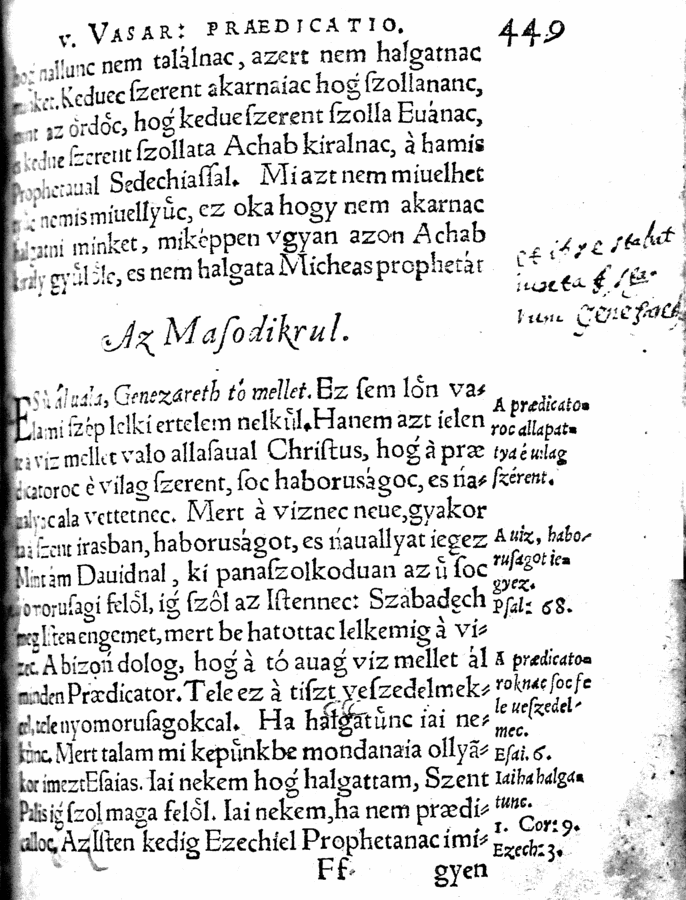 v. VASAR: PRAEDICATIO. 449
nallunc nem talâlnac, azert nem halgatnac
Keduec ſzerent akarnaiac hoǵ ſzollananc,
az ördőc, hoǵ kedue ſzerent ſzolla Euánac,
kedue ſzerent ſzollata Achab kiralnac, à hamis
Prophetaual Sedechiaſſal. Mi azt nem miuelhet
nemis miuellyűc, ez oka hogy nem akarnac
minket, miképpen vgyan azon Achab
gyűlöle, es nem halgata Micheas prophetát
Az Maſodikrul.
Genezáreth tó mellet. Ez ſem lőn va⸗
lami ſzép lelki ertelem nelkűl. Hanem azt ielen
viz mellet valo allaſaual Chriſtus, hoǵ à præ
dicatoroc è vilag ſzerent, ſoc haboruságoc, es ńa⸗
cala vettetnec. Mert à víznec neue, gyakor
ſzent irasban, haboruságot, es ńauallyat iegez
Mint ám Dauidnal, ki panaſzolkoduan az ű ſoc
ńororuſagi felől, iǵ ſzôl az Iſtennec: Szabadęch
meg Iſten engemet, mert be hatottac lelkemig à vi⸗
zec. A bizoń dolog, hoǵ à tó auaǵ víz mellet ál
minden Prædicator. Tele ez à tiſzt veſzedelmek⸗
cel, tele nyomoruſagokcal. Ha halgatűnc iai ne⸗
kűnc. Mert talam mi kepűnkbe mondanaia ollyā⸗
kor imezt Eſaias. Iai nekem hoǵ halgattam, Szent
Palis iǵ ſzol maga felől. Iai nekem, ha nem prædi⸗
calloc. Az Iſten kediǵ Ezechiel Prophetanac imi⸗
Ff gyen
A prædicato⸗
roc allapat⸗
tya é uilag
ſzérent.
A uiz, habo⸗
ruſagot ie⸗
gyez.
Pſal: 68.
A prædicato⸗
roknac ſoc fe
le ueſzedel⸗
mec.
Eſai. 6.
Iai ha halga⸗
tunc.
1. Cor: 9.
Ezech: 3.